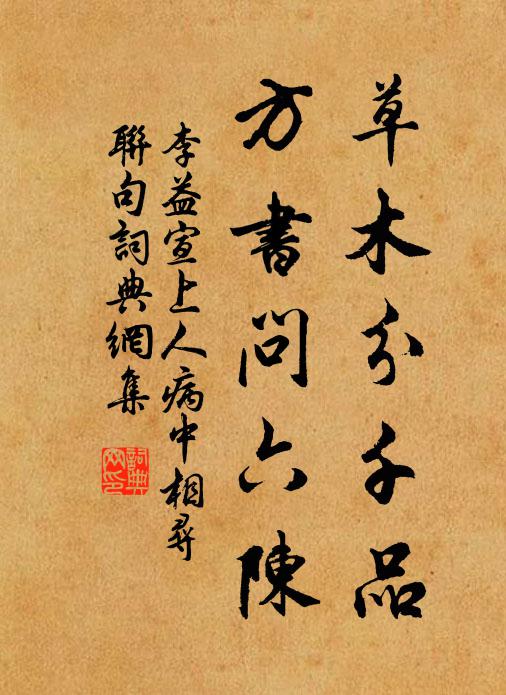 草木分千品
方書問六陳
李益宣上人病中相尋
聯句詞典網集
詞典網印